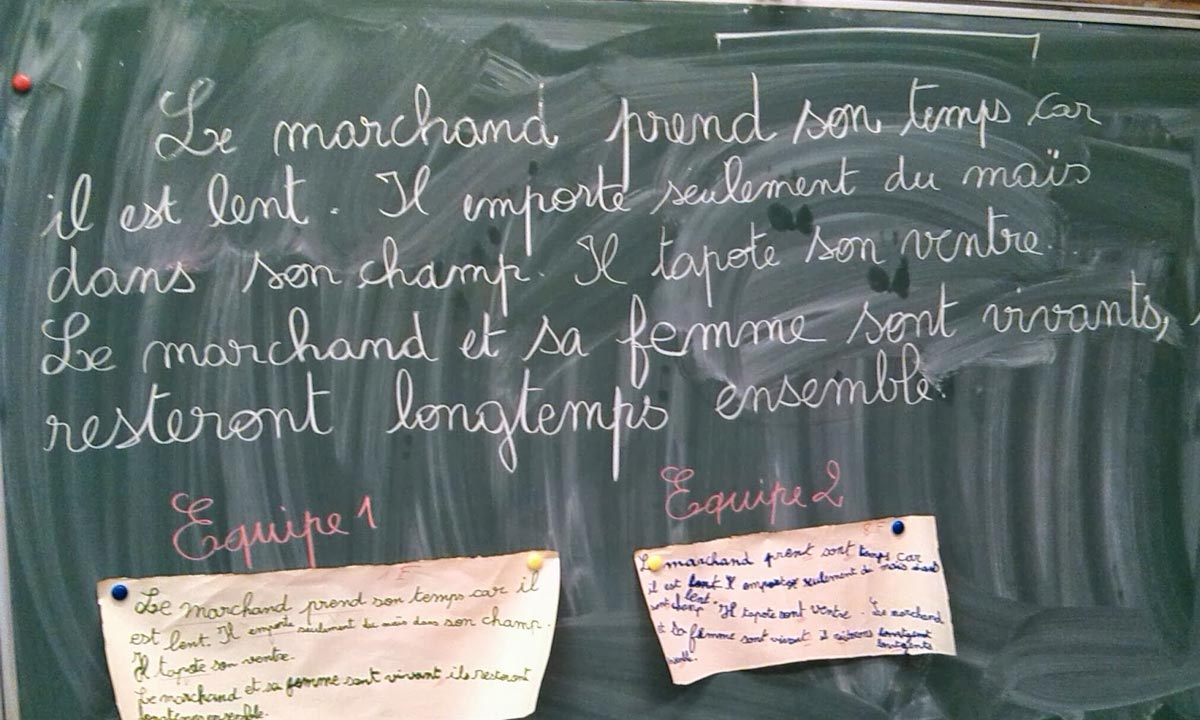 Le marchand prend son temps car
il est lent. Il emporte seulement du maïs
dans son champ. Il tapote son ventre.
Le marchand et sa femme sont vivants,
resteront longtemps ensemble.
Equipe 1
Le marchand prend son temps car il
est lent. Il emporte seulement du maïs dans son champ.
Il tapote son ventre.
Le marchand et sa femme sont vivant ils resteront
longtemps ensemble.
Equipe 2
Le marchand prent sont temps car
il est lent Il seulement de maïs
lent.
sont champ. Il tapote sont ventre. Le marchand
et sa femme sont vivant il